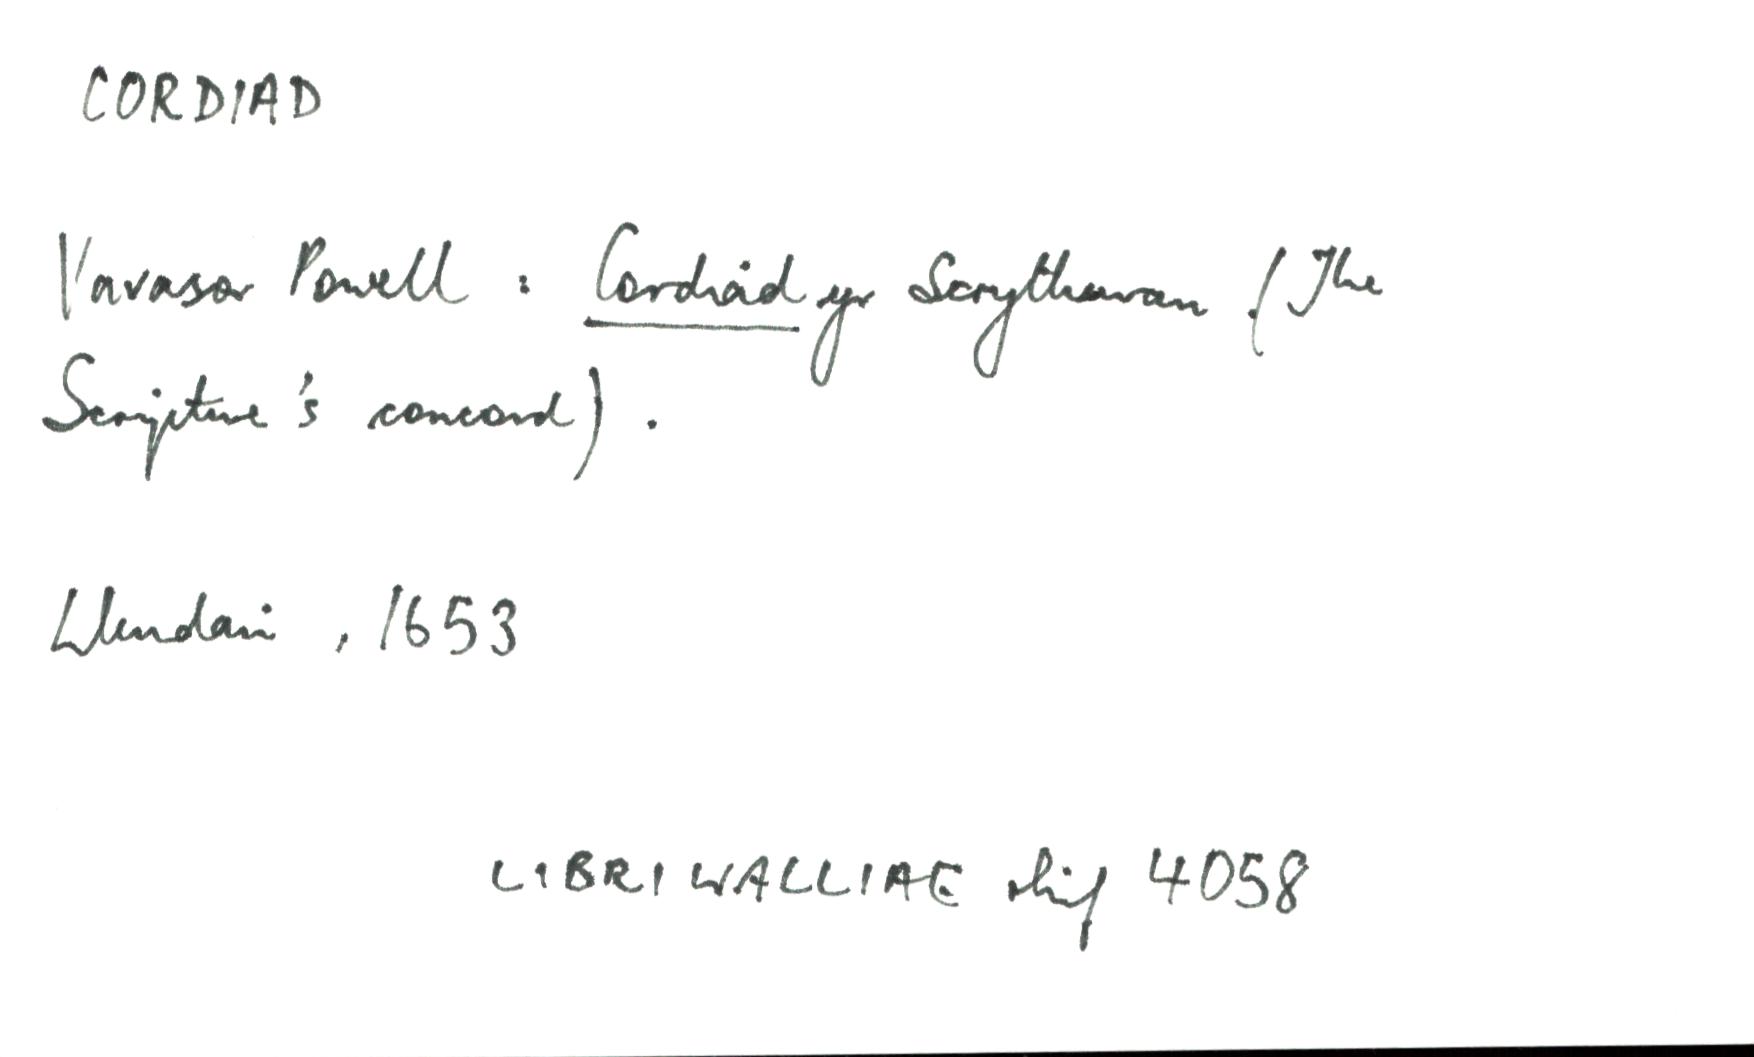 CORDIAD
Vavasor Powell : Cordiad yr Scrythuran (The
Scripture's concord).
Llundain, 1653
LIBRI WALLIAE rhif 4058